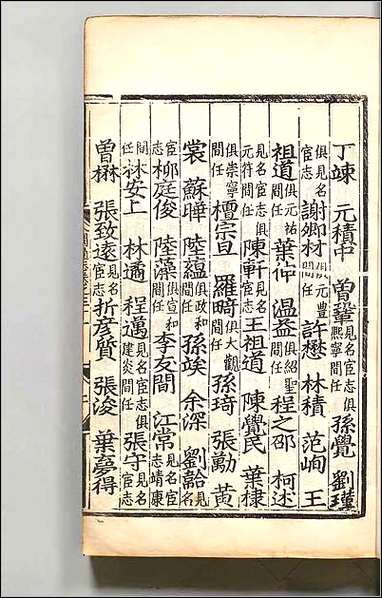 丁竦 元積中 曾鞏見名宦志俱熙寧間任 孫覺 劉瑾
俱見名宦志 謝卿材俱元豐間任 許懋 林積 范峋 王
祖道俱元祐間任 葉伸 溫益俱紹聖間任 程之邵 柯述
見名宦志俱元符間任 陳軒見名宦志 王祖道 陳覺民 葉棣
俱崇寧間任 檀宗旦 羅畸俱大觀間任 孫琦 張勵 黃
裳 蘇曄 陸蘊俱政和間任 孫竢 余深 劉韐見名
宦志 柳庭俊 陸藻俱宣和間任 李友聞 江常見名宦志靖康
間任 林安上 林遹 程邁見名宦志建炎間任 張守見名宦志
曾楙 張致遠見名宦志 折彥質 張浚 葉夢得